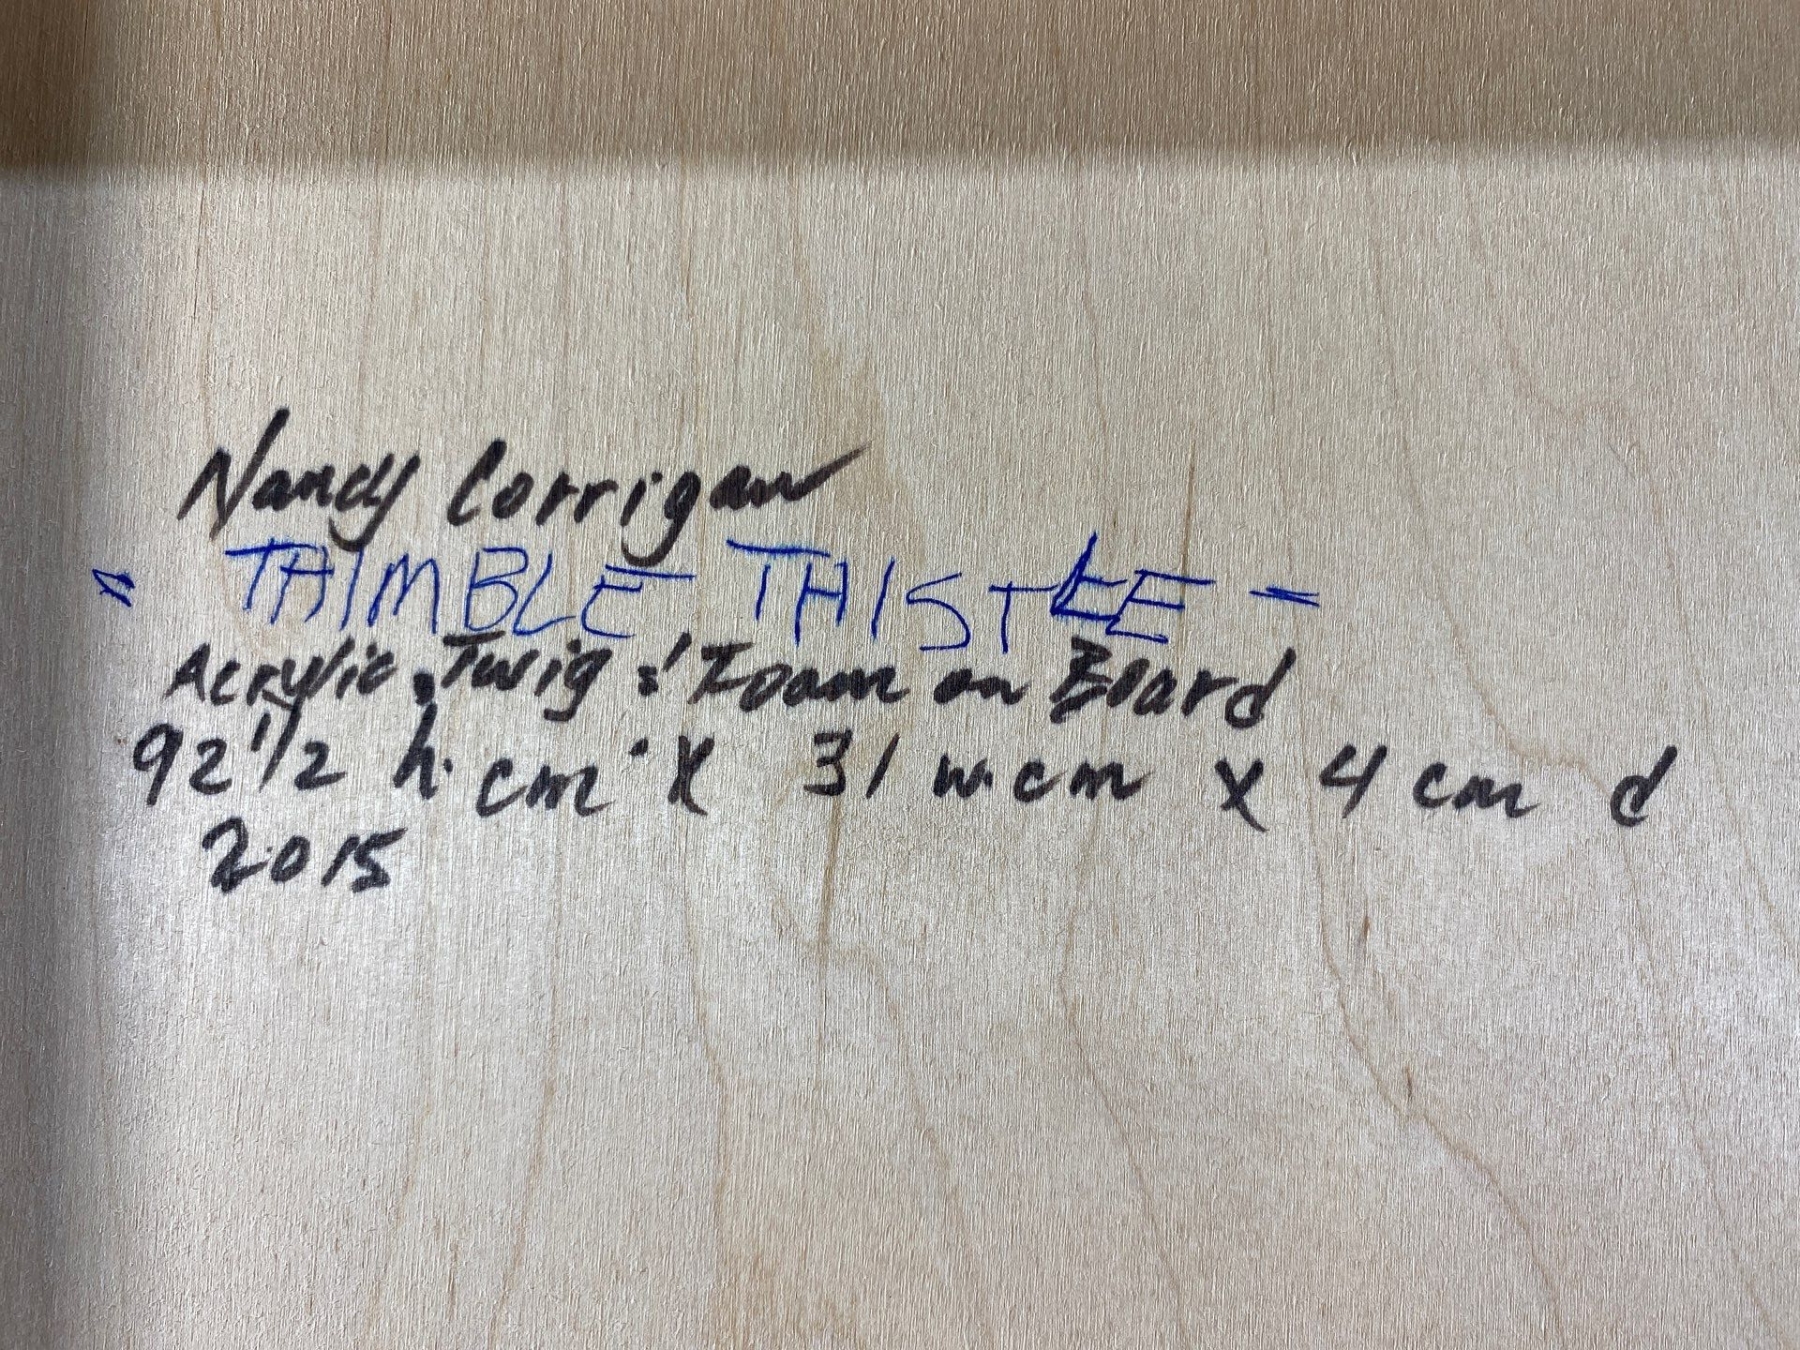 Nancy Corrigan
" THIMBLE THISTLE "
Acrylic, Twig & Foam on Board
92 1/2 h. cm x 31 w. cm x 4 cm d
2015